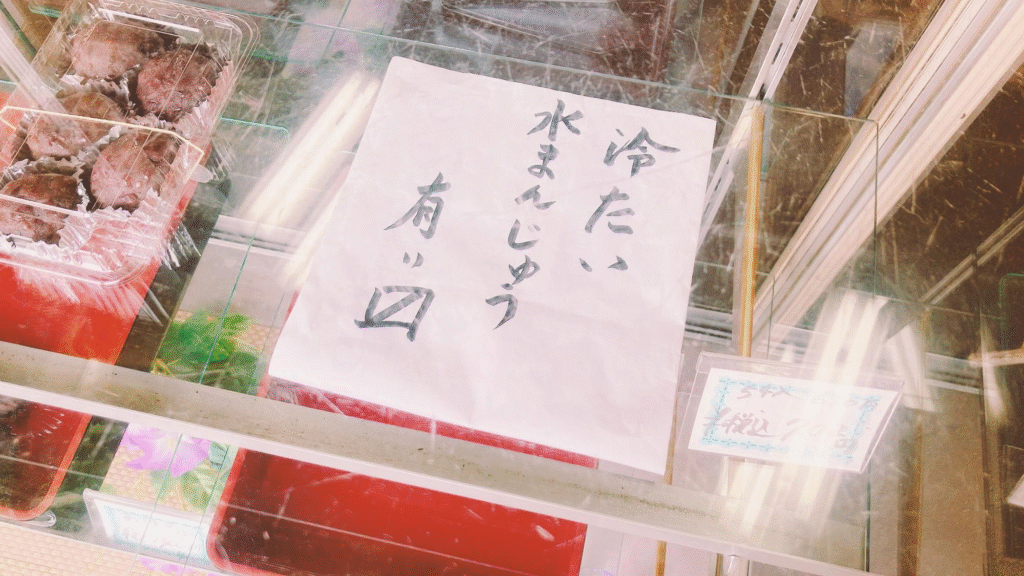 冷たい
水まんじゅう
有り〼
税込